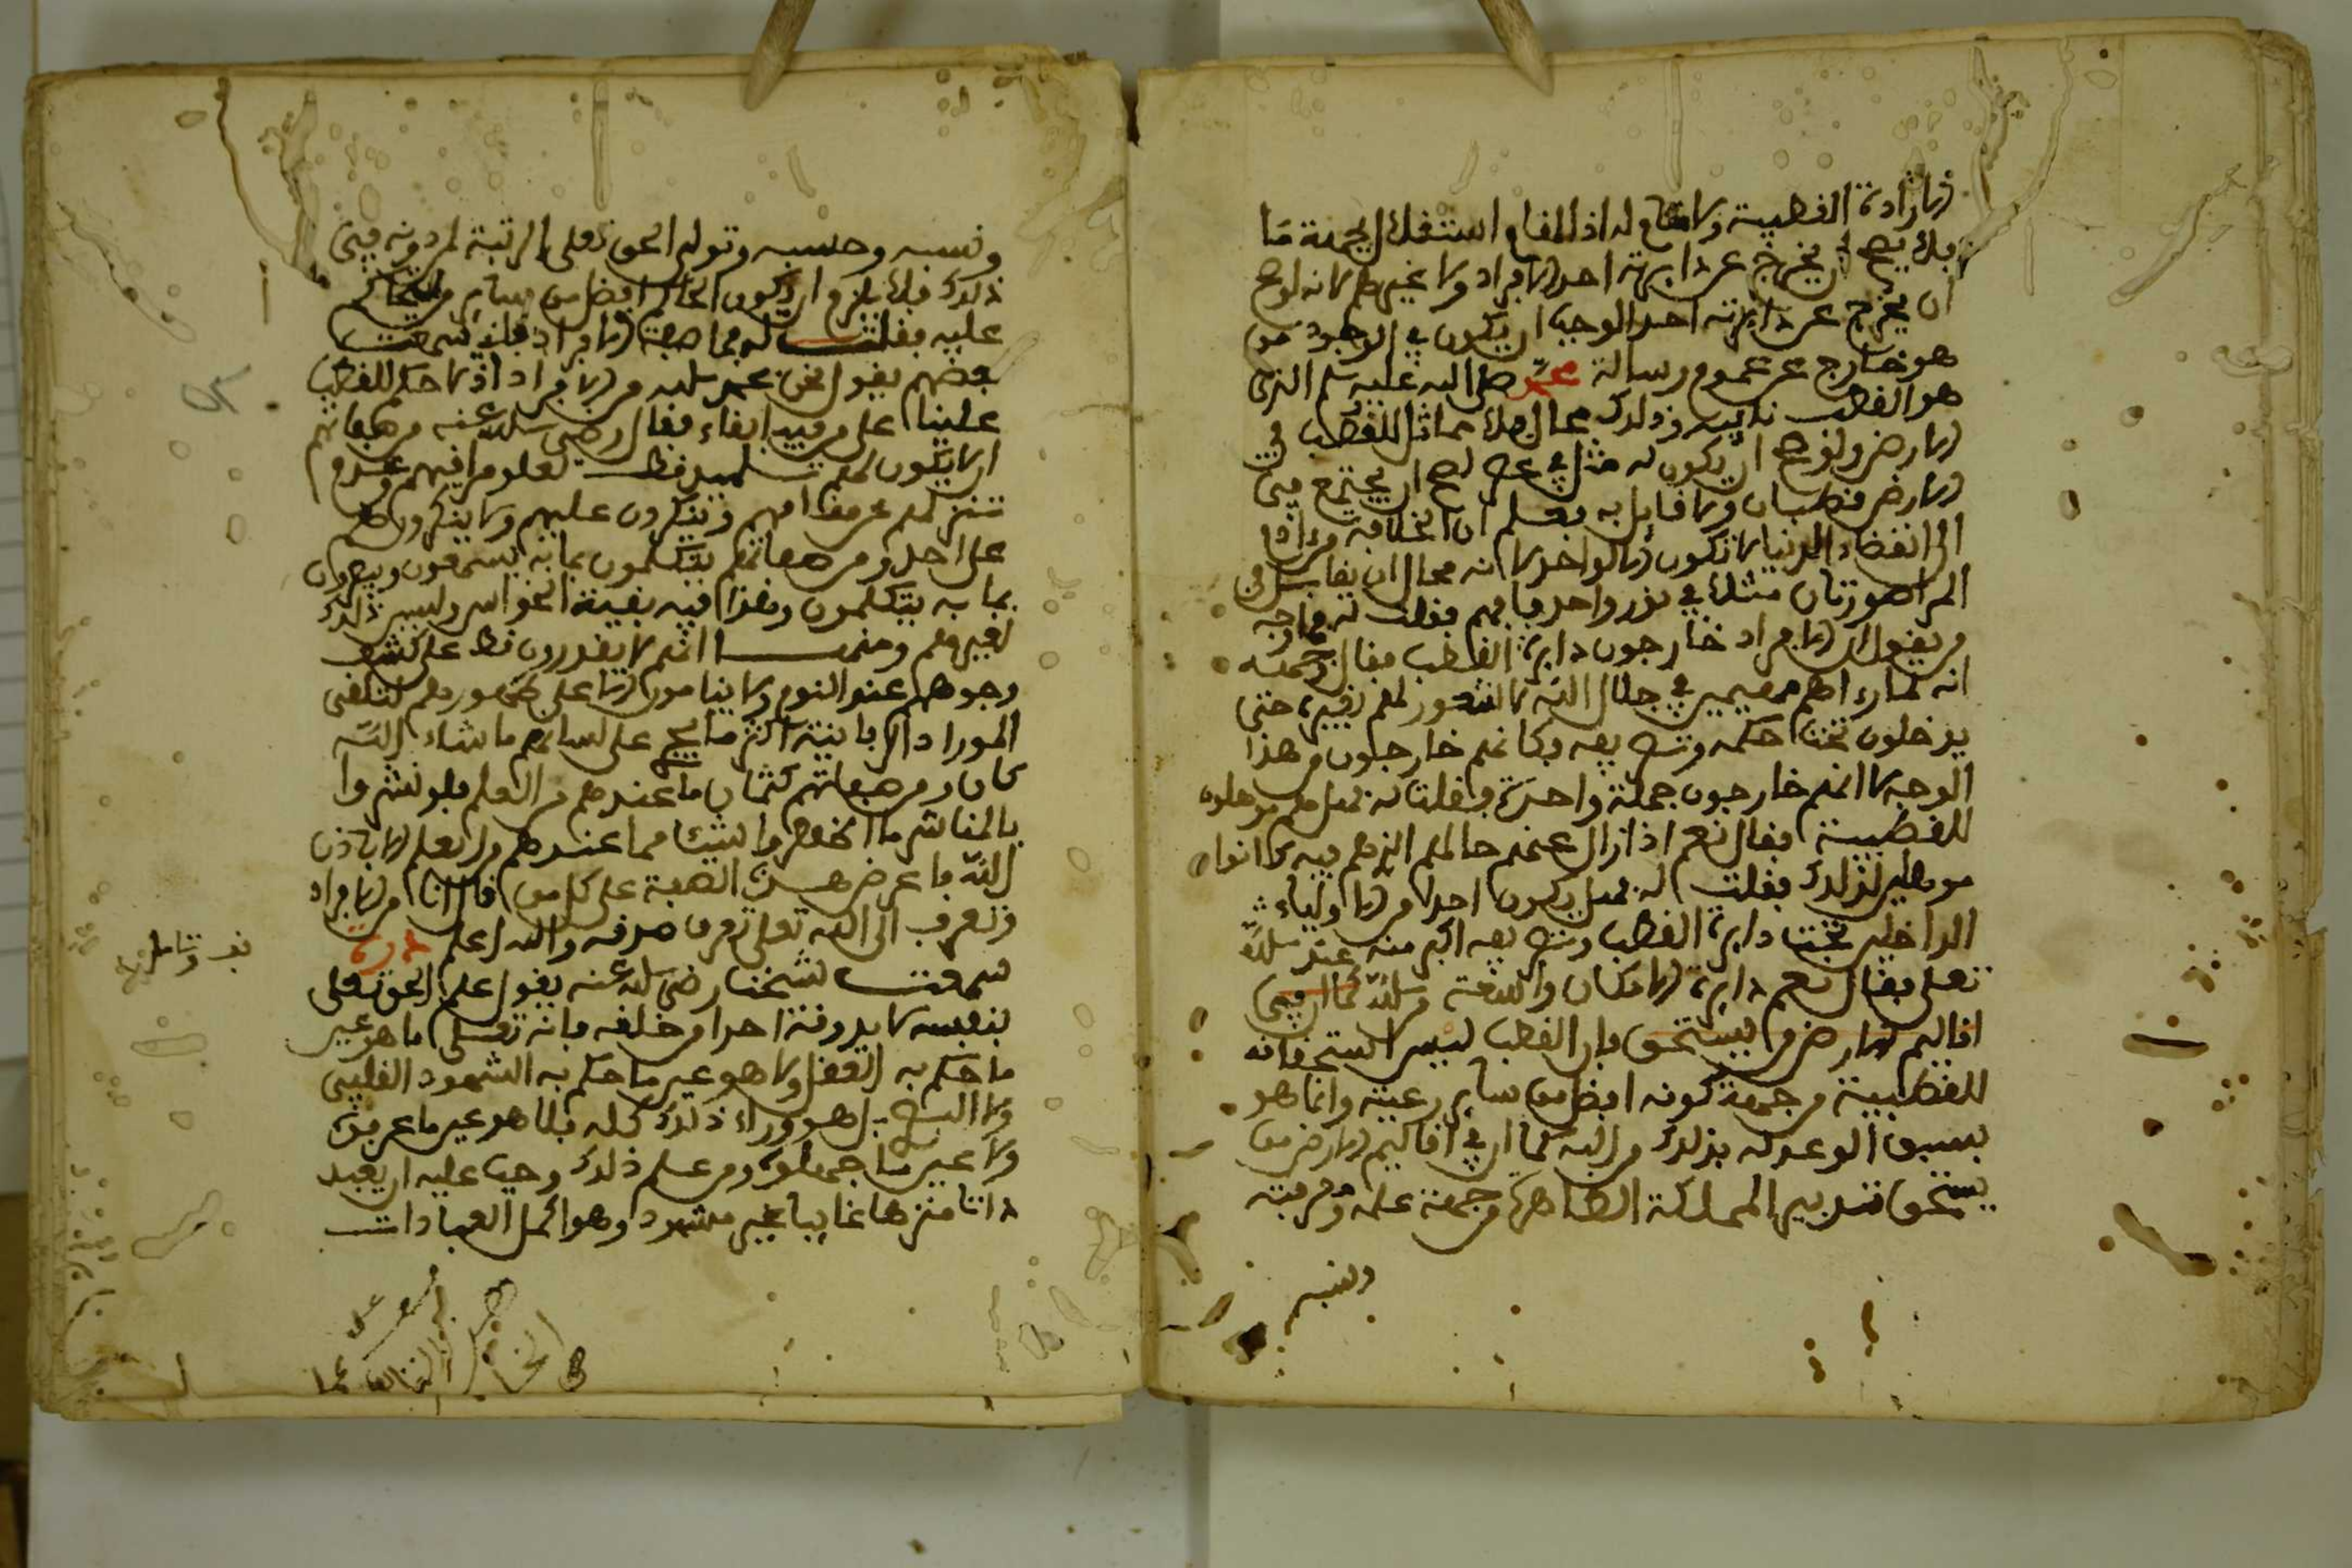 الارادة القطبية ولا مقام له اذ المقام استغلال بجهة ما
فلا يصح ان يخرج عن دايرته احد الافراد ولا غيرهم لانه لو صح
ان يخرج عن دايرته احد لوجب ان يكون في الوجود من
هو خارج عن عموم رسالة محمد صلى الله عليه وسلم الذي
هو القطب نايبه وذلك محال فلا مماثل للقطب في
الارض ولو صح ان يكون له مثل في عصره لصح ان يجتمع في
الارض قطبان ولا قايل به فعلم ان الخلافة من ادم
الى انقضاء الدنيا لا تكون الا لواحد لانه محال ان يقابل في
المراة صورتان مثلا في نور واحد فافهم فقلت له فما وجه
من يقول ان الافراد خارجون دايرة القطب فقال وجهه
انه لما راهم مهيمين في جلال الله لا شعور لهم بغيره حتى
يدخلون تحت حكمه وتصريفه فكانهم خارجون من هذا
الوجه لا انهم خارجون جملة واحدة فقلت له فهل هم موهلون
للقطبية فقال نعم اذا زال عنهم حالهم الذي هم فيه كانوا
موهلين لذلك فقلت له فهل يكون احد من الاولياء
الداخلين تحت دايرة القطب وتصريفه اكبر منه عند الله
تعلى فقال نعم دايرة الامكان واسعة والله كما ان في
اقاليم الارض من يستحق فان القطب ليس استحقاقه
للقطبية من جهة كونه افضل من ساير رعيته وانما هو
بسبق الوعد له بذلك من الله كما ان في اقاليم الارض من
يستحق تدبير المملكة الظاهرة من جهة علمه ومرتبته
ونسبه
ونسبه وحسبه وتولية الحق تعلى الرتبة لمن دونه في
ذلك فلا يلزم ان يكون الحاكم افضل من ساير من يتحاكم
عليه فقلت له فما صفة الافراد فاني سمعت
بعضهم يقول نحن بحمد الله من الافراد اذ لا حكم للقطب
علينا على من قيد ابقاء فقال رضي الله عنه من صفاتهم
ان لا يكون لهم تلميذ قط لعلو مراقيهم وعدم
تنزلهم عن مقامهم وينكرون عليهم ولا ينكرون هم
على احد ومن صفاتهم يتكلمون بما به يسمعون ويبصرون
بما به يتكلمون وهذا فيه بقية الحواس وليس ذلك
لغيرهم ومنها انهم لا يقدرون قط على كشف
وجوههم عند النوم ولا ينامون الا على ظهورهم لتلقي
الموارد الربانية اكثر ما يجري على لسانهم ما شاء الله
كان ومن صفاتهم كتمان ما عندهم من العلم فلو نشروا
بالمناشر ما اظهروا شيئا مما عندهم من العلم الا باذن
الله فاعرض هذه الصفة على كل من قال انا من الافراد
وتعرف الى الله تعلى تعرف صدقه والله اعلم درة
سمعت شيخنا رضي الله عنه يقول علم الحق تعلى
بنفسه لا يذوقه احد من خلقه فانه تعلى ما هو عين
ما حكم به العقل ولا هو عين ما حكم به الشهود القلبي
ولا البصري بل هو وراء ذلك كله فلا هو عين ما عرفوه
ولا عين ما جهلوه ومن علم ذلك وجب عليه ان يعبد
ذاتا منزها غايبا غير مشهود وهو اكمل العبادات